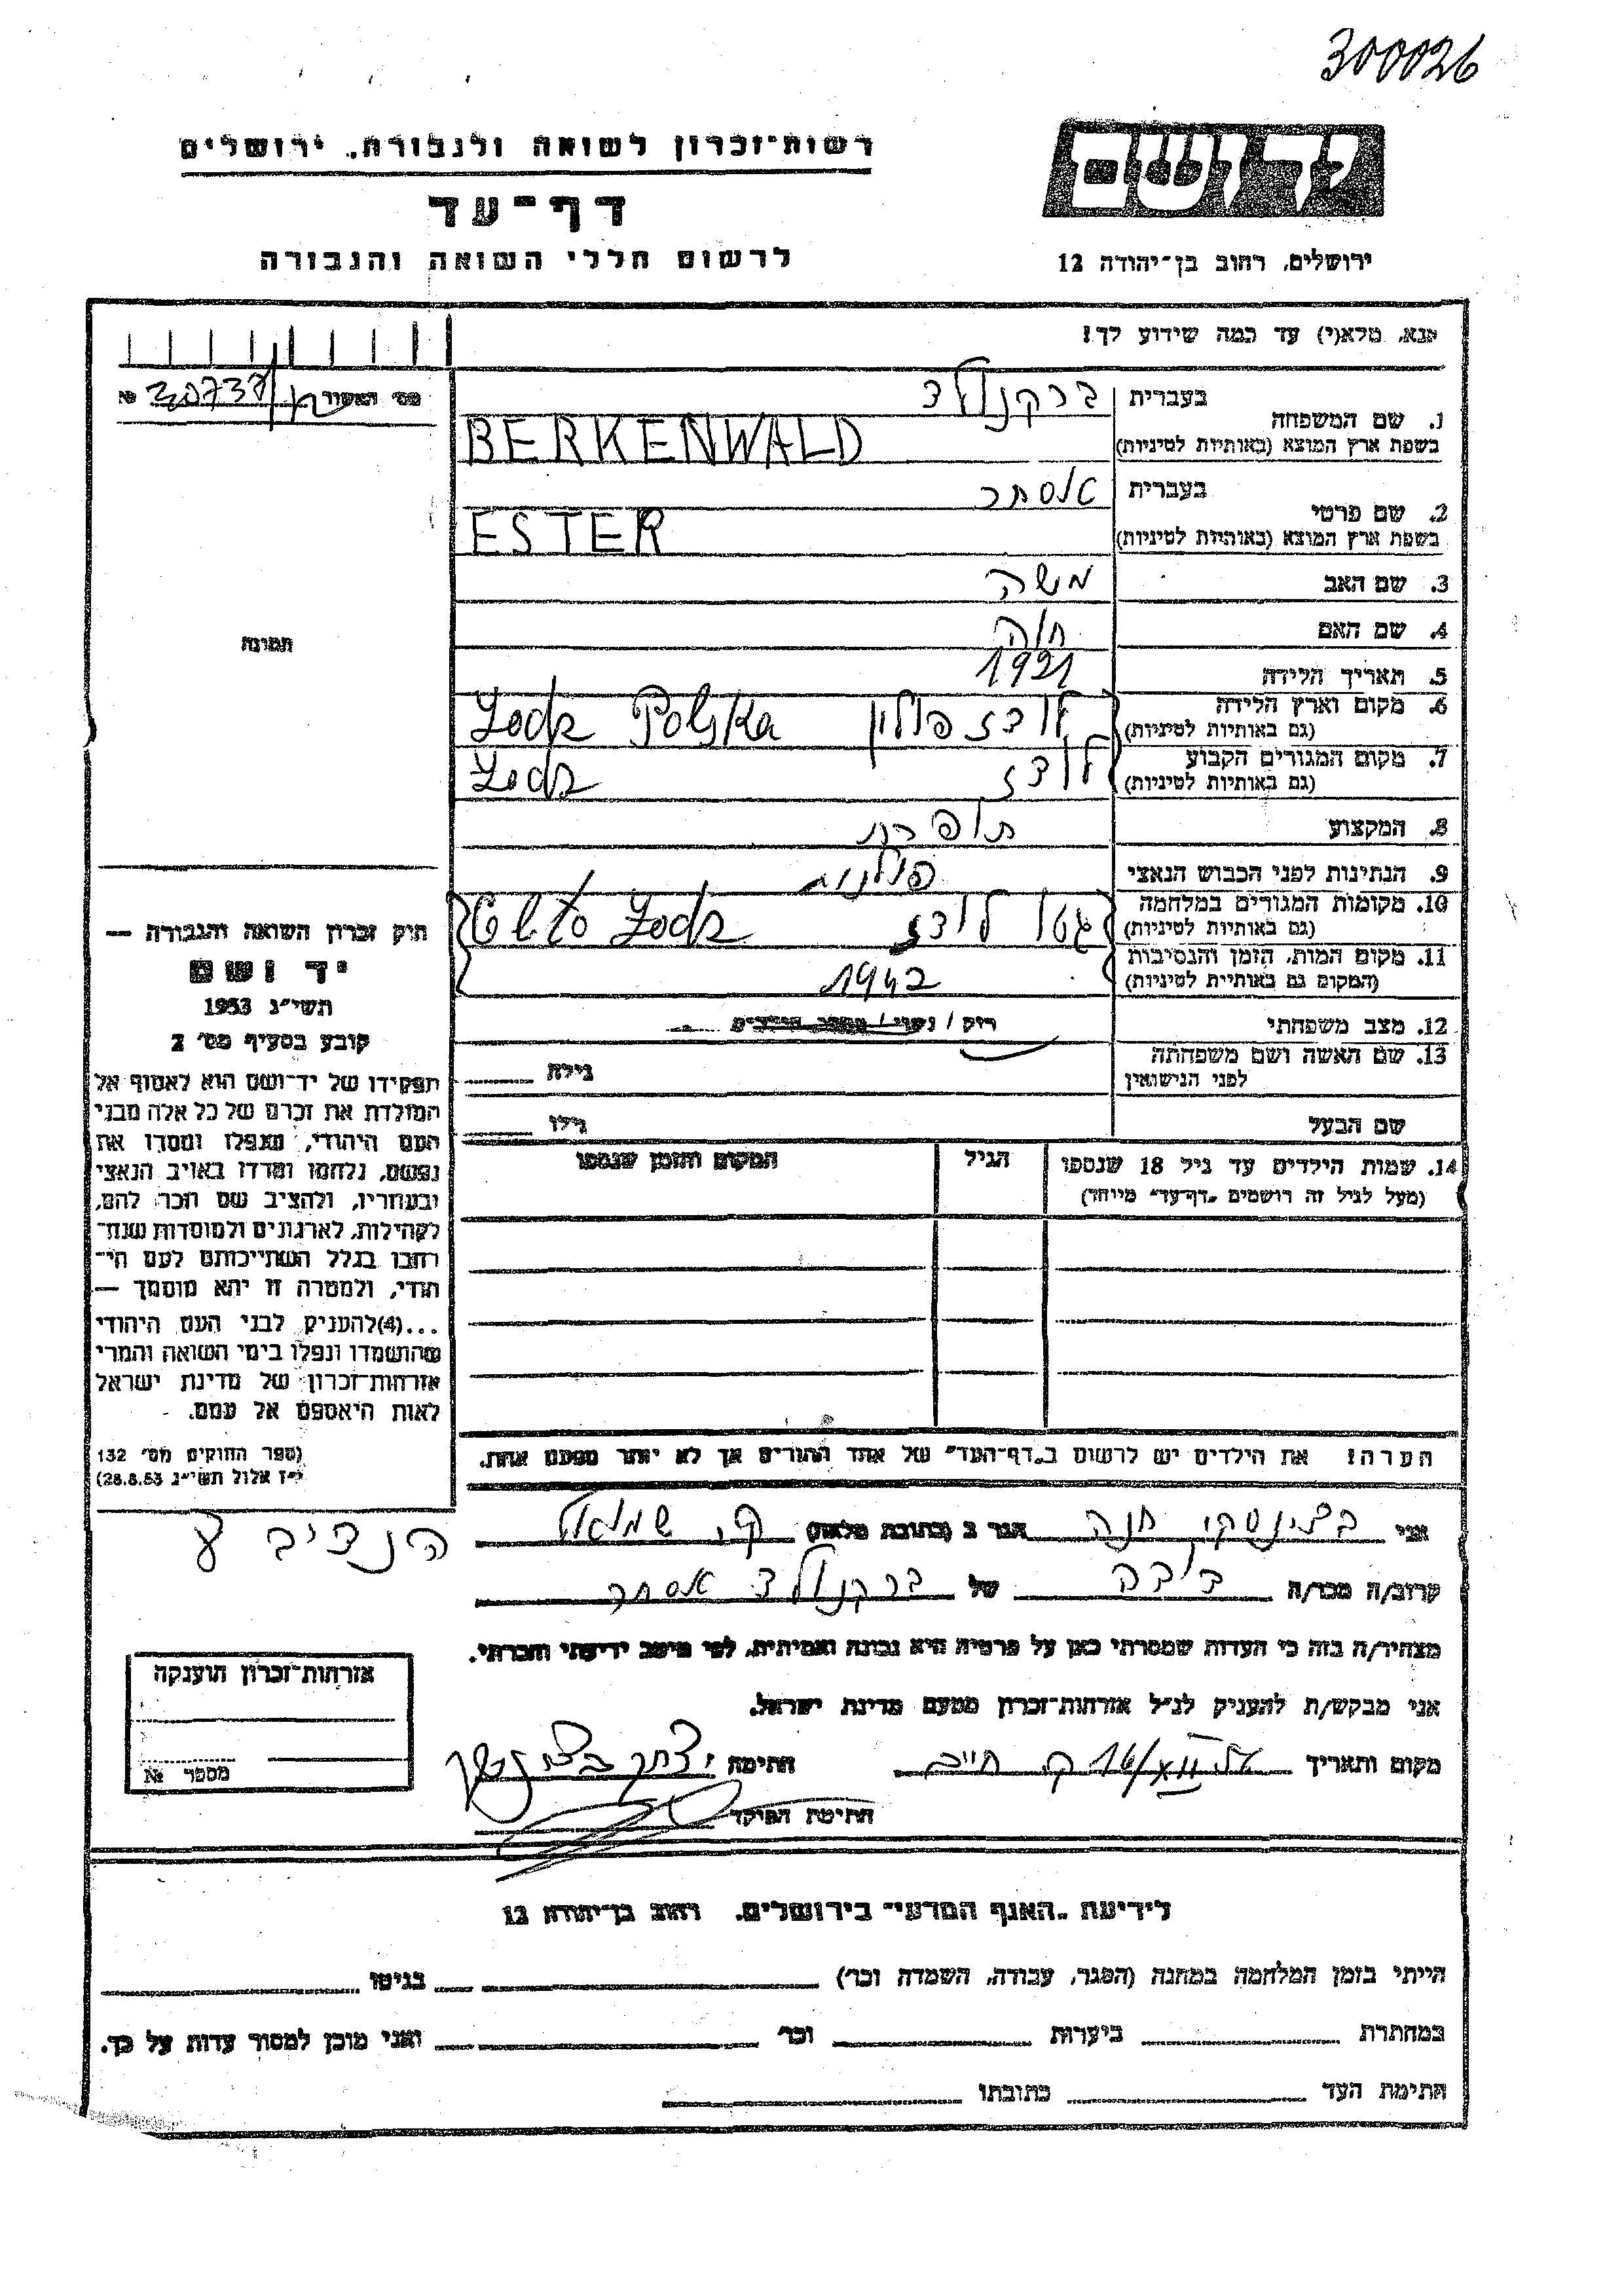 300026
רשות-זכרון לשואה ולגבורה, ירושלים
יד ושם
דף-עד
לרשום חללי השואה והגבורה
ירושלים, רחוב בן-יהודה 12
נא, מלא(י) עד כמה שידוע לך!
מס' האשור № 30737
1. שם המשפחה
בעברית ברקנולד
בשפת ארץ המוצא (באותיות לטיניות) BERKENWALD
2. שם פרטי
בעברית אסתר
בשפת ארץ המוצא (באותיות לטיניות) ESTER
3. שם האב משה
4. שם האם חוה
5. תאריך הלידה 1921
6. מקום וארץ הלידה לודז פולין Lodz Polska
(גם באותיות לטיניות)
7. מקום המגורים הקבוע לודז Lodz
(גם באותיות לטיניות)
8. המקצוע תופרת
9. הנתינות לפני הכבוש הנאצי פולנית
10. מקומות המגורים במלחמה גטו לודז Geto Lodz
(גם באותיות לטיניות)
11. מקום המות, הזמן והנסיבות 1942
(המקום גם באותיות לטיניות)
12. מצב משפחתי רוק / נשוי / מספר הילדים
13. שם האשה ושם משפחתה גילה
לפני הנישואין
שם הבעל גילו
14. שמות הילדים עד גיל 18 שנספו הגיל המקום והזמן שנספו
(מעל לגיל זה רושמים "דף-עד" מיוחד)
הערה! את הילדים יש לרשום ב"דף-העד" של אחד ההורים אך לא יותר מפעם אחת.
תמונה
חוק זכרון השואה והגבורה —
יד ושם
תשי"ג 1953
קובע בסעיף מס' 2
תפקידו של יד-ושם הוא לאסוף אל
המולדת את זכרם של כל אלה מבני
העם היהודי, שנפלו ומסרו את
נפשם, נלחמו ומרדו באויב הנאצי
ובעוזריו, ולהציב שם וזכר להם,
לקהילות, לארגונים ולמוסדות שנח-
רבו בגלל השתייכותם לעם הי-
הודי, ולמטרה זו יהא מוסמך —
...(4)להעניק לבני העם היהודי
שהושמדו ונפלו בימי השואה והמרי
אזרחות-זכרון של מדינת ישראל
לאות היאספם אל עמם.
(ספר החוקים מס' 132
י"ז אלול תשי"ג 28.8.53)
אני חנה הגר ב (כתובת מלאה) ק. שמואל הנציב
קרוב/ה מכר/ה דודה של ברקנולד אסתר
מצהיר/ה בזה כי העדות שמסרתי כאן על פרטיה היא נכונה ואמיתית, לפי מיטב ידיעתי והכרתי.
אני מבקש/ת להעניק לנ"ל אזרחות-זכרון מטעם מדינת ישראל.
מקום ותאריך ק. חתימה יצחק
חתימת הפקיד
אזרחות-זכרון הוענקה
מספר №
לידיעת "האגף המדעי" בירושלים, רחוב בן-יהודה 12
הייתי בזמן המלחמה במחנה (הסגר, עבודה, השמדה וכו') בגיטו
במחתרת ביערות וכו' ואני מוכן למסור עדות על כך.
חתימת העד כתובתו